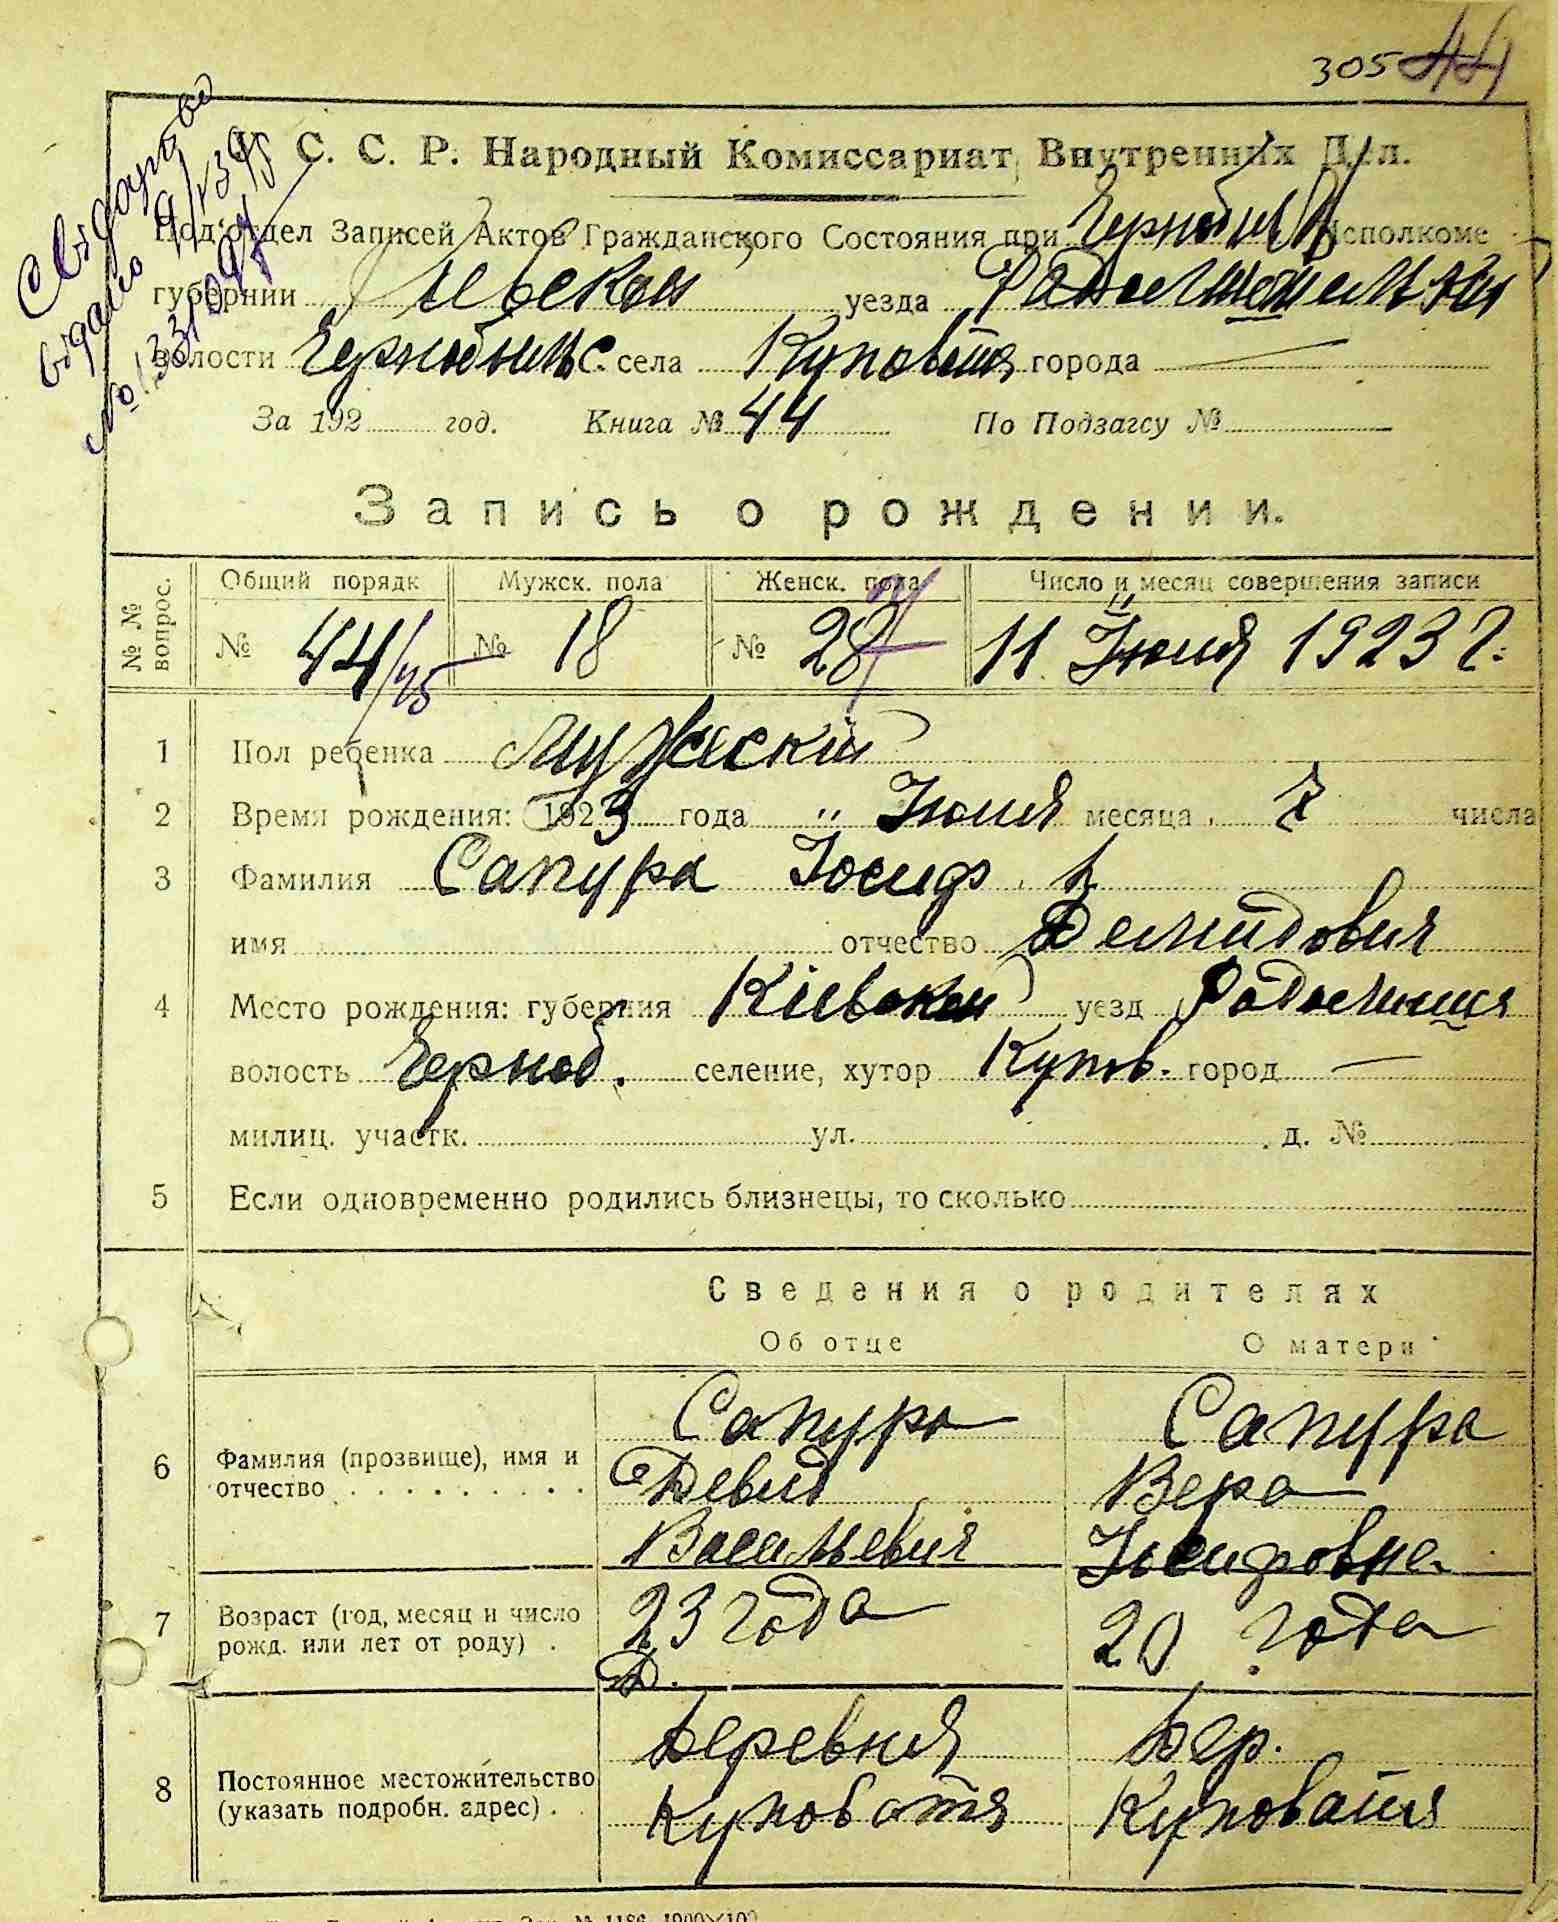 305 44
Свідоцтво
видано
У. С. С. Р. Народный Комиссариат Внутренних Дел.
Под'отдел Записей Актов Гражданского Состояния при Чернобил Исполкоме
губернии Киевской уезда Радомышльский
волости Чернобильс. села Куповатя города —
За 192 год. Книга № 44 По Подзагсу №
Запись о рождении.
№№ вопрос. Общий порядк Мужск. пола Женск. пола Число и месяц совершения записи
№ 44/45 № 18 № 28 11 Июня 1923 г.
1 Пол ребенка Мужеский
2 Время рождения: 1923 года " Июня месяца 7 числа
3 Фамилия Сапура Иосиф
имя отчество Демидович
4 Место рождения: губерния Кіевской уезд Радомышля
волость Черноб. селение, хутор Купов. город —
милиц. участк. ул. д. №
5 Если одновременно родились близнецы, то сколько
Сведения о родителях
Об отце О матери
Сапура Сапура
6 Фамилия (прозвище), имя и отчество Девид Вера
Васильевич Иосифовна
7 Возраст (год, месяц и число рожд. или лет от роду) 23 года 20 года
Д.
Деревня Дер.
8 Постоянное местожительство (указать подробн. адрес) Куповатя Куповатя